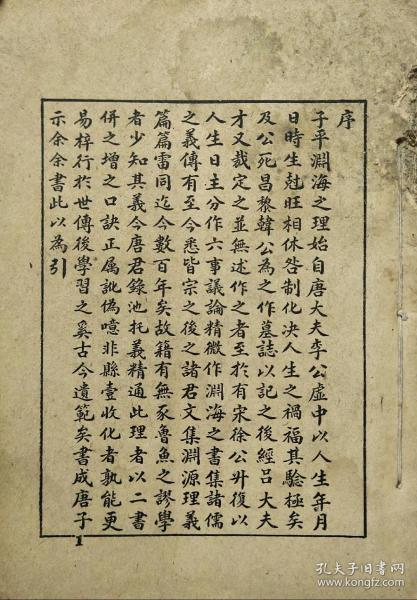 序
子平淵海之理始自唐大夫李公虛中以人生年月
日時生尅旺相休咎制化决人生之禍福其驗極矣
及公死昌黎韓公為之作墓誌以記之後經呂大夫
才又裁定之並無述作之者至於有宋徐公升復以
人生日主分作六事議論精微作淵海之書集諸儒
之義傳有至今悉皆宗之後之諸君文集淵源理義
篇篇雷同迄今數百年矣故籍有無豕魯魚之謬學
者少知其義今唐君錄池托義精通此理者以二書
併之增之口訣正属訛偽噫非縣壹收化者孰能更
易梓行於世傳後學習之奚古今遺範矣書成唐子
示余余書此以為引
1
孔夫子旧书网
www.kongfz.com